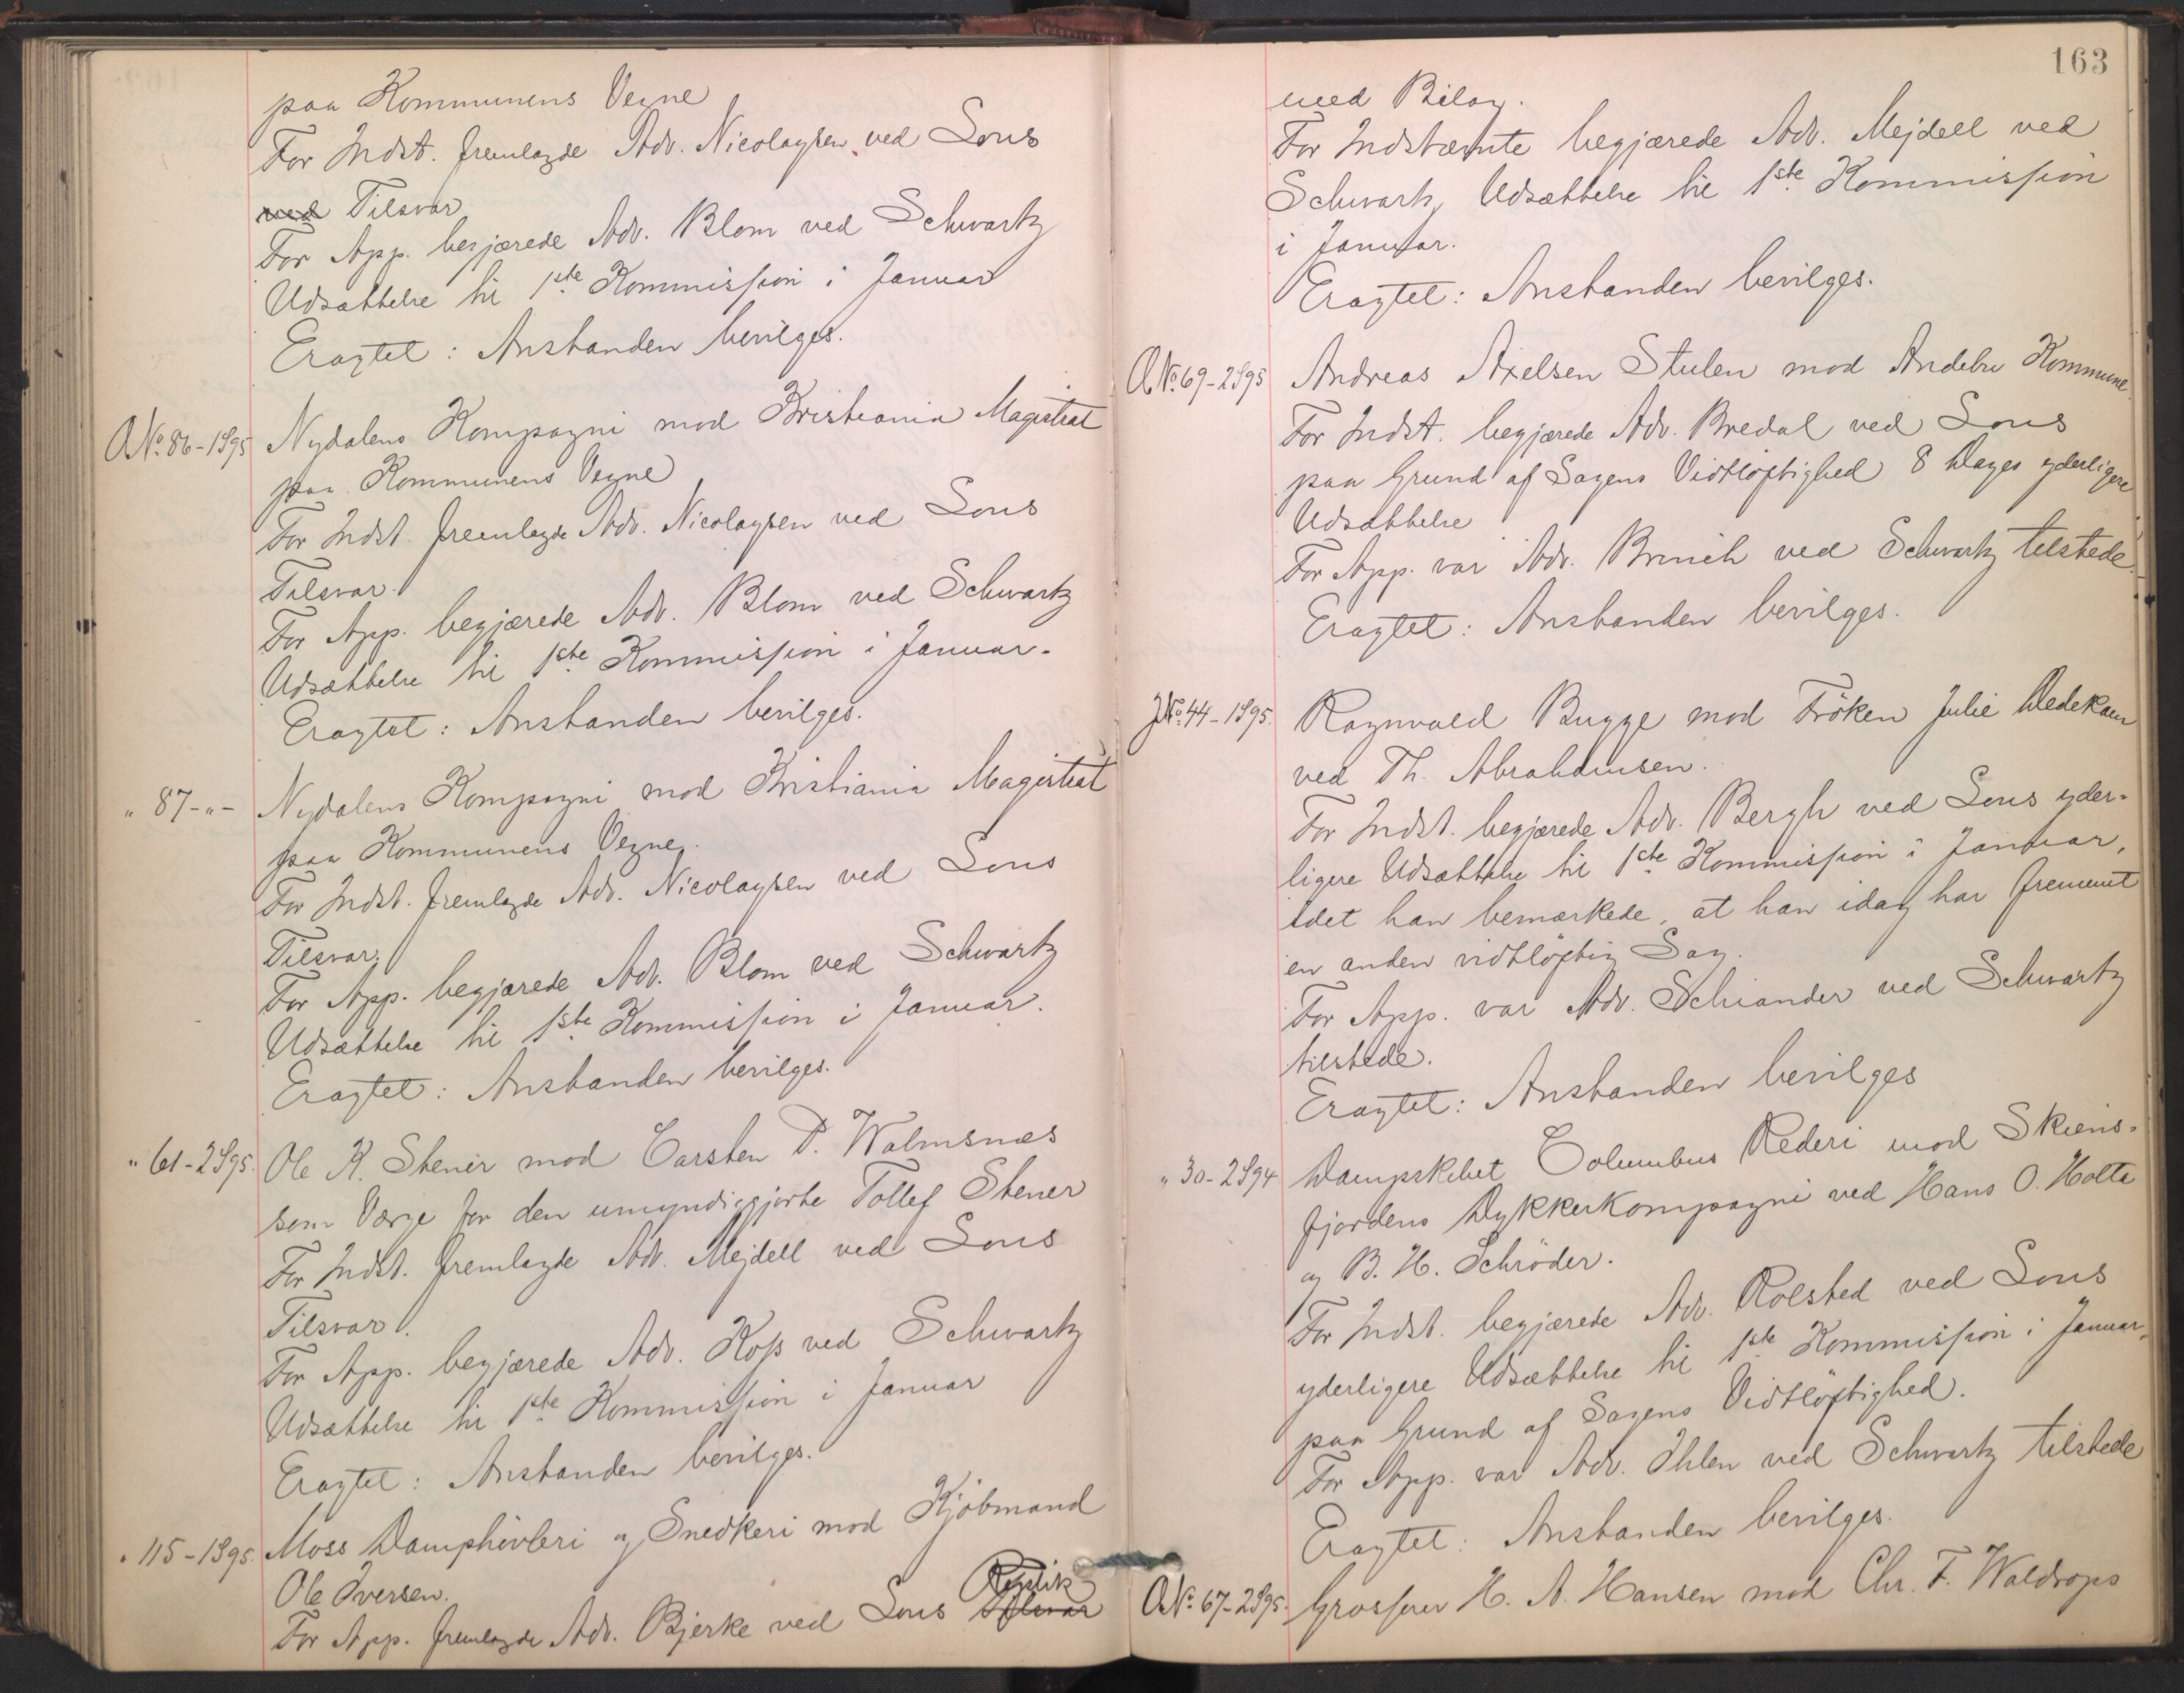 paa Kommunens Vegne
For Indst. fremlagde Adv. Nicolaysen ved Lous
ved Tilsvar
For App. begjærede Adv. Blom ved Schwartz
Udsættelse til 1ste Kommission i Januar
Eragtet: Anstanden bevilges.
A No. 86-1S95 Nydalens Kompagni mod Kristiania Magistrat
paa Kommunens Vegne
For Indst. fremlagde Adv. Nicolaysen ved Lous
Tilsvar.
For App. begjærede Adv. Blom ved Schwartz
Udsættelse til 1ste Kommission i Januar.
Eragtet: Anstanden bevilges.
" 87-"- Nydalens Kompagni mod Kristiania Magistrat
paa Kommunens Vegne.
For Indst. fremlagde Adv. Nicolaysen ved Lous
Tilsvar.
For App. begjærede Adv. Blom ved Schwartz
Udsættelse til 1ste Kommission i Januar.
Eragtet: Anstanden bevilges.
" 61-2S95. Ole K. Stener mod Carsten P. Walmsnæs
som Værge for den umyndiggjorte Tollef Stener
For Indst. fremlagde Adv. Mejdell ved Lous
Tilsvar.
For App. begjærede Adv. Koss ved Schwartz
Udsættelse til 1ste Kommission i Januar
Eragtet: Anstanden bevilges.
" 115-1S95. Moss Damphövleri og Snedkeri mod Kjöbmand
Ole Iversen.
For App. fremlagde Adv. Bjerke ved Lous Tilsvar Replik
163
med Bilag.
For Indstævnte begjærede Adv. Mejdell ved
Schwartz Udsættelse til 1ste Kommission
i Januar.
Eragtet: Anstanden bevilges.
A No. 69-2S95 Andreas Axelsen Stulen mod Andebu Kommune
For Indst. begjærede Adv. Bredal ved Lous
paa Grund af Sagens Vidtlöftighed 8 Dages yderligere
Udsættelse
For App. var Adv. Bruuch ved Schwartz tilstede.
Eragtet: Anstanden bevilges.
J No. 44-1S95. Ragnvald Bugge mod Fröken Julie Dedekam
ved Th. Abrahamsen.
For Indst. begjærede Adv. Bergh ved Lous yder-
ligere Udsættelse til 1ste Kommission i Januar,
idet han bemærkede, at han idag har fremmt
en anden vidtlöftig Sag.
For App. var Adv. Schiander ved Schwartz
tilstede.
Eragtet: Anstanden bevilges
" 30-2S94 Dampskibet Columbus Rederi mod Skiens-
fjordens Dykkerkompagni ved Hans O. Holta
og B. H. Schröder.
For Indst. begjærede Adv. Rolsted ved Lous
yderligere Udsættelse til 1ste Kommission i Januar,
paa Grund af Sagens Vidtlöftighed.
For App. var Adv. Ihlen ved Schwartz tilstede
Eragtet: Anstanden bevilges.
A No. 67-2S95. Grosserer H. A. Hansen mod Chr. F. Waldrops